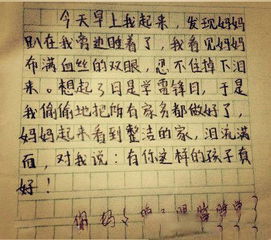 今天早上我起来，发现妈妈
趴在我旁边睡着了，我看见妈妈
布满血丝的双眼，忍不住掉下泪
来。想起了日是学雷锋日，于是
我偷偷地把所有家务都做好了，
妈妈起来看到整洁的家，泪流满
面，对我说：有你这样的孩子真
好！
你妈